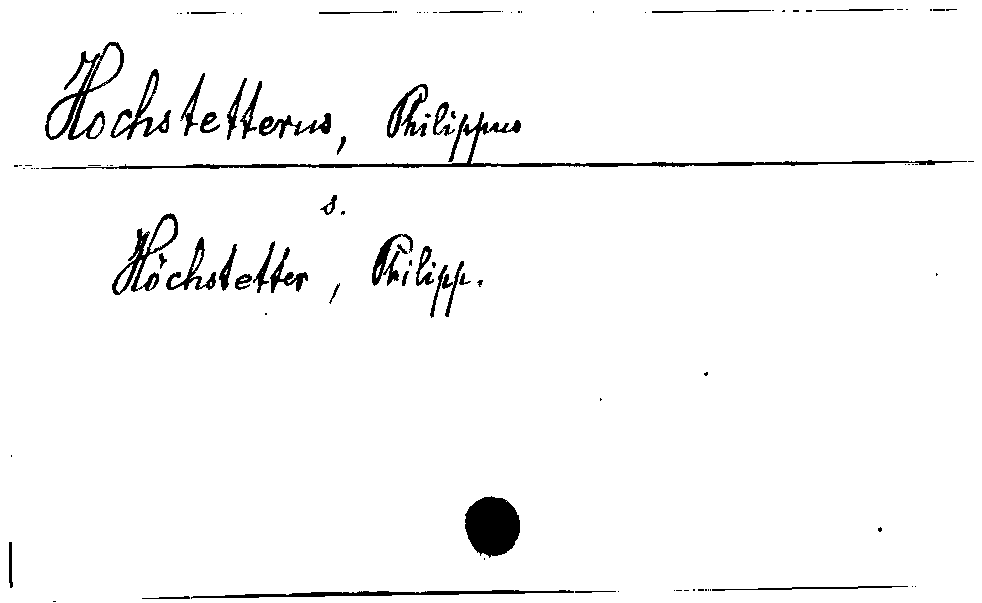 Hochstetterus, Philippus
s.
Höchstetter, Philipp.